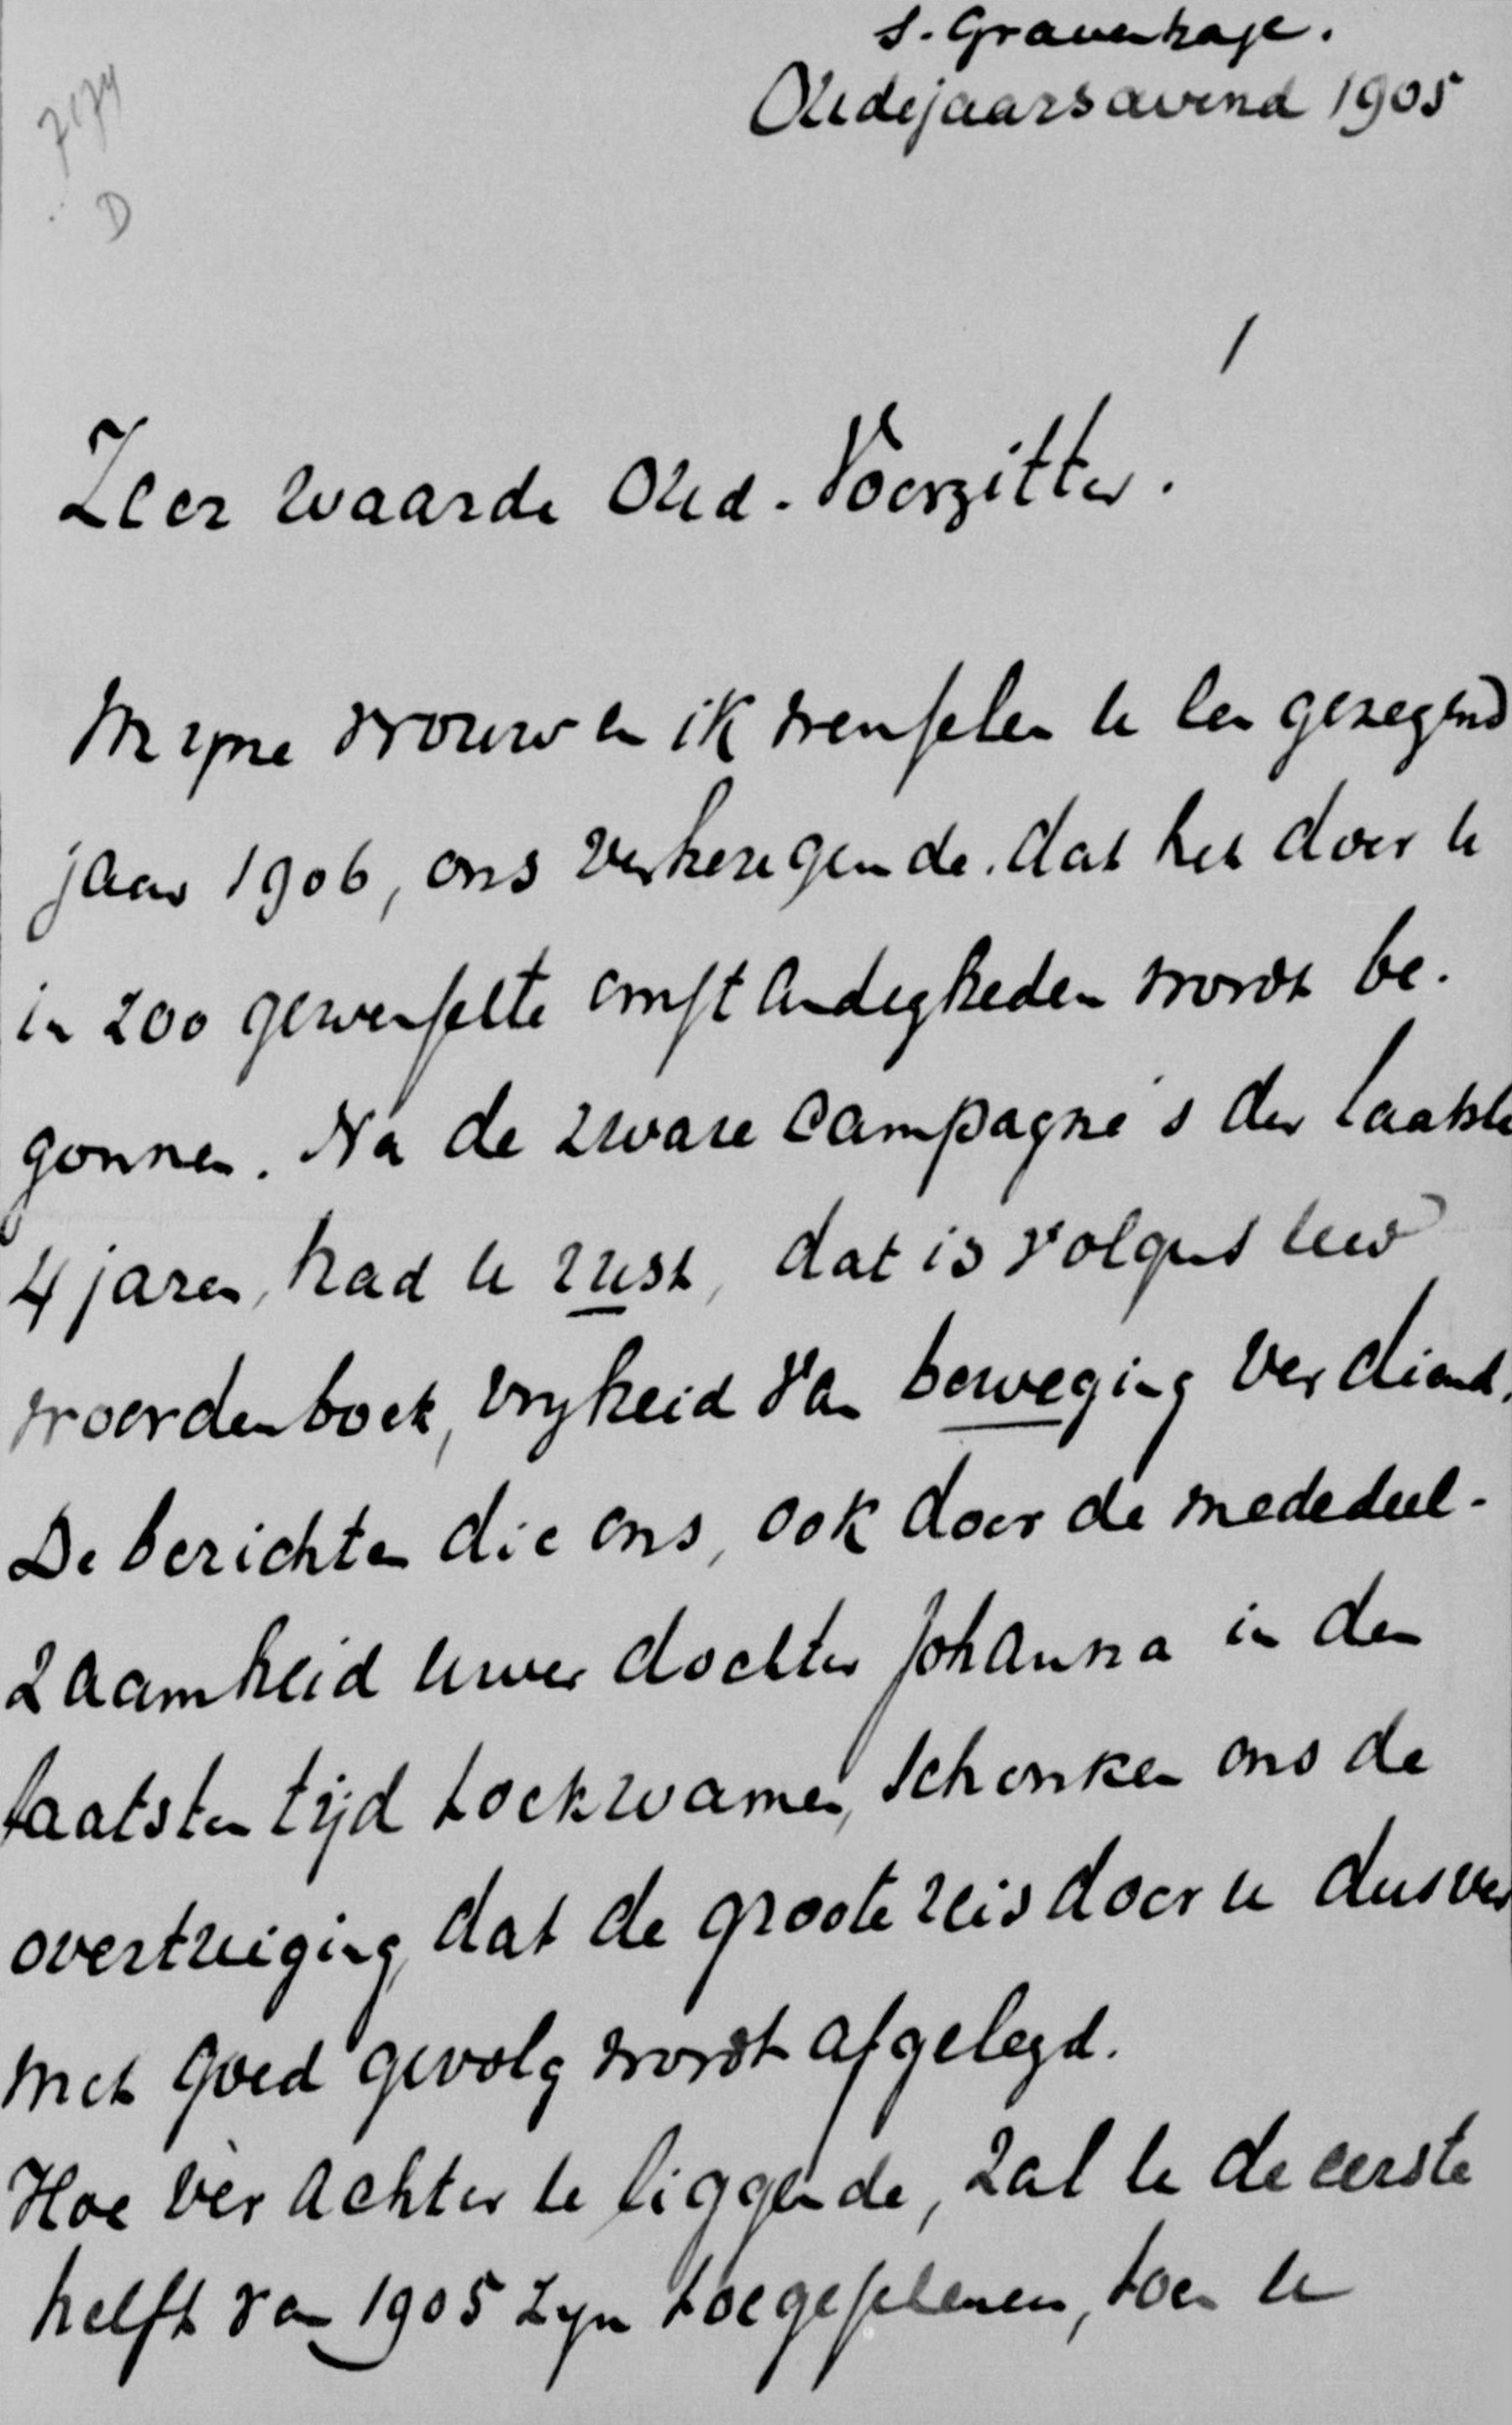 s. Gravenhage.
Oudejaarsavend 1905
7174
D
1
Zeer waarde Oud-Voorzitter.
Mijne vrouw en ik wenschen u een gezegend
jaar 1906, ons verheugende dat het door u
in zoo gewenschte omstandigheden wordt be-
gonnen. Na de zware campagne's der laatste
4 jaren, had u rust, dat is volgens uw
woordenboek, vrijheid van beweging verdiend.
De berichten die ons, ook door de mededeel-
zaamheid uwer dochter Johanna in den
laatsten tijd toekwamen, schonken ons de
overtuiging, dat de groote reis door u dusver
met goed gevolg wordt afgelegd.
Hoe vèr achter u liggende, zal u de eerste
helft van 1905 zijn toegeschenen, toen u